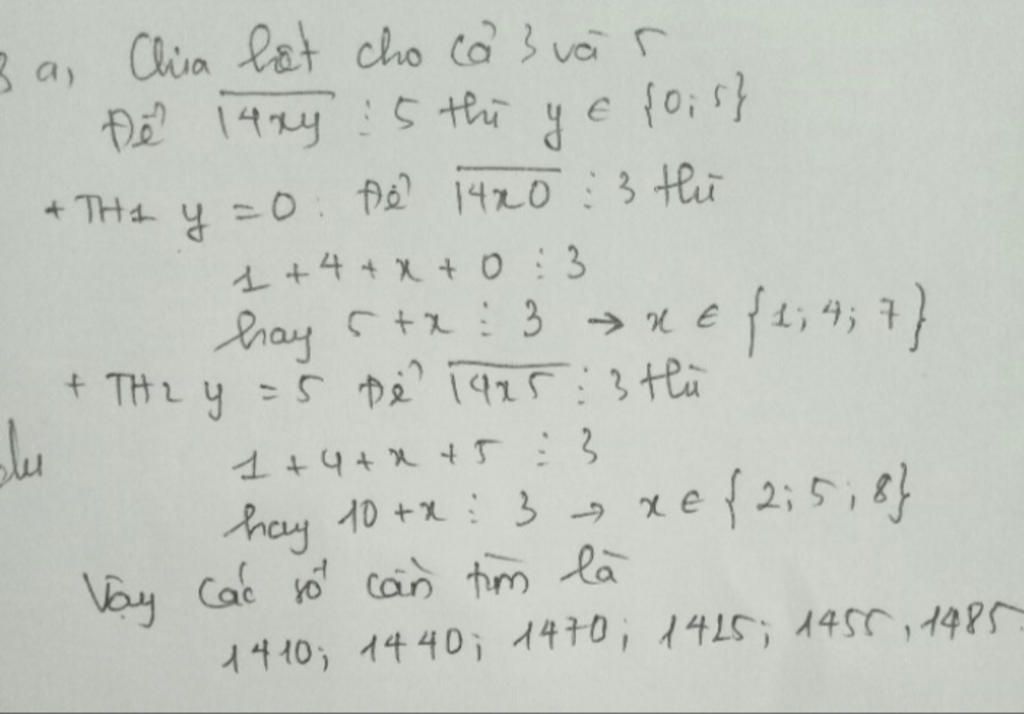 3 a, Chia hết cho cả 3 và 5
Để 14xy ⋮ 5 thì y ∈ {0; 5}
+ TH1 y = 0. Để 14x0 ⋮ 3 thì
1 + 4 + x + 0 ⋮ 3
hay 5 + x ⋮ 3 → x ∈ {1; 4; 7}
+ TH2 y = 5 Để 14x5 ⋮ 3 thì
1 + 4 + x + 5 ⋮ 3
hay 10 + x ⋮ 3 → x ∈ {2; 5; 8}
Vậy các số cần tìm là
1410; 1440; 1470; 1425; 1455, 1485.